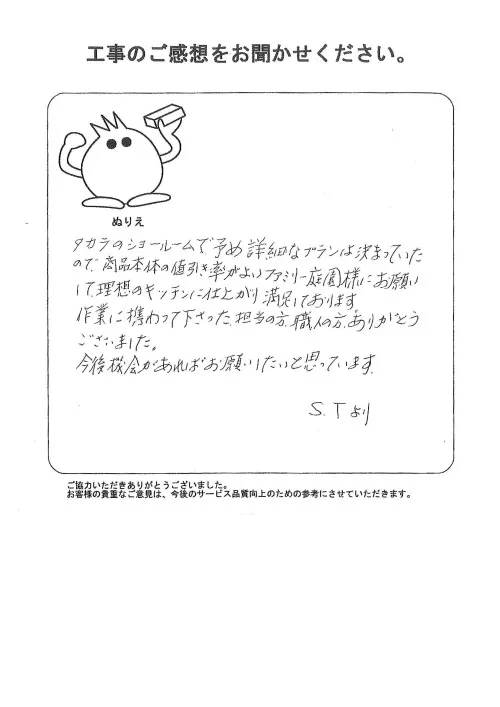 工事のご感想をお聞かせください。
ぬりえ
タカラのショールームで予め詳細なプランは決まっていた
ので、商品本体の値引き率がよいファミリー庭園様にお願い
して、理想のキッチンに仕上がり満足しております。
作業に携わって下さった担当の方、職人の方、ありがとう
ございました。
今後機会があればお願いしたいと思っています。
S.Tより
ご協力いただきありがとうございました。
お客様の貴重なご意見は、今後のサービス品質向上のための参考にさせていただきます。